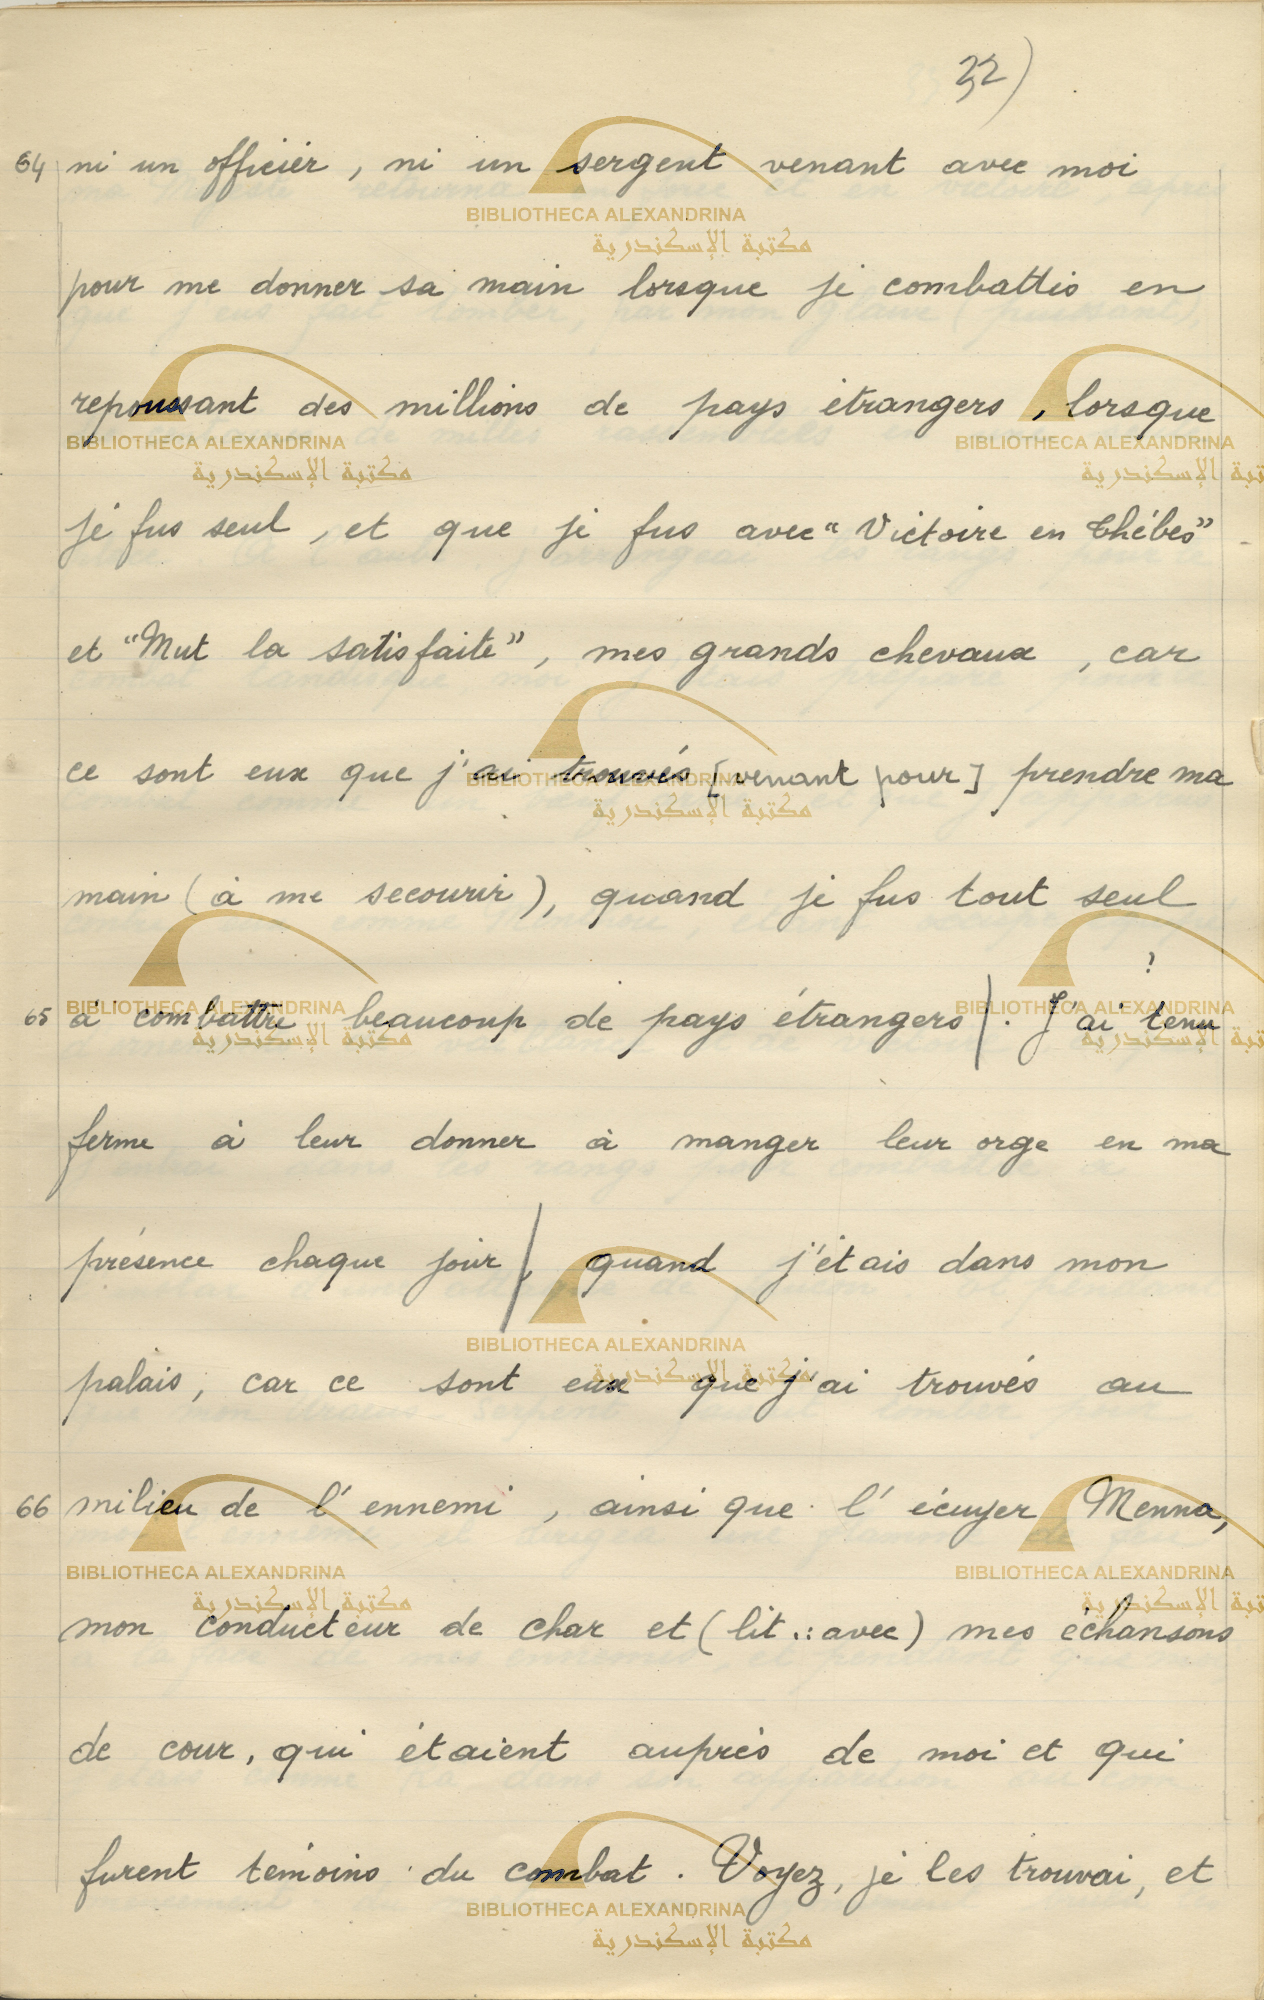 32)
64 ni un officier, ni un sergent venant avec moi
pour me donner sa main lorsque je combattis en
repoussant des millions de pays étrangers, lorsque
je fus seul, et que je fus avec "Victoire en Thébes"
et "Mut la satisfaite", mes grands chevaux, car
ce sont eux que j'ai trouvés [venant pour] prendre ma
main (à me secourir), quand je fus tout seul
?
65 à combattre beaucoup de pays étrangers |. J'ai tenu
ferme à leur donner à manger leur orge en ma
présence chaque jour |, quand j'étais dans mon
palais, car ce sont eux que j'ai trouvés au
66 milieu de l'ennemi, ainsi que l'écuyer Menna,
mon conducteur de char et (lit.: avec) mes échansons
de cour, qui étaient auprès de moi et qui
furent témoins du combat. Voyez, je les trouvai, et
BIBLIOTHECA ALEXANDRINA
مكتبة الإسكندرية